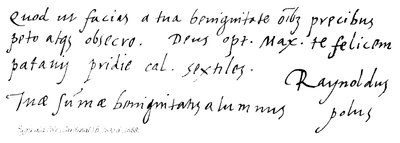 Quod ut facias a tua benignitate oĩbꝫ precibus
peto atqꝫ obsecro. Deus opt. Max. te felicem
patavij pridie cal. sextiles.
Raynoldus
Tuæ sũmæ benignitatis alumnus polus